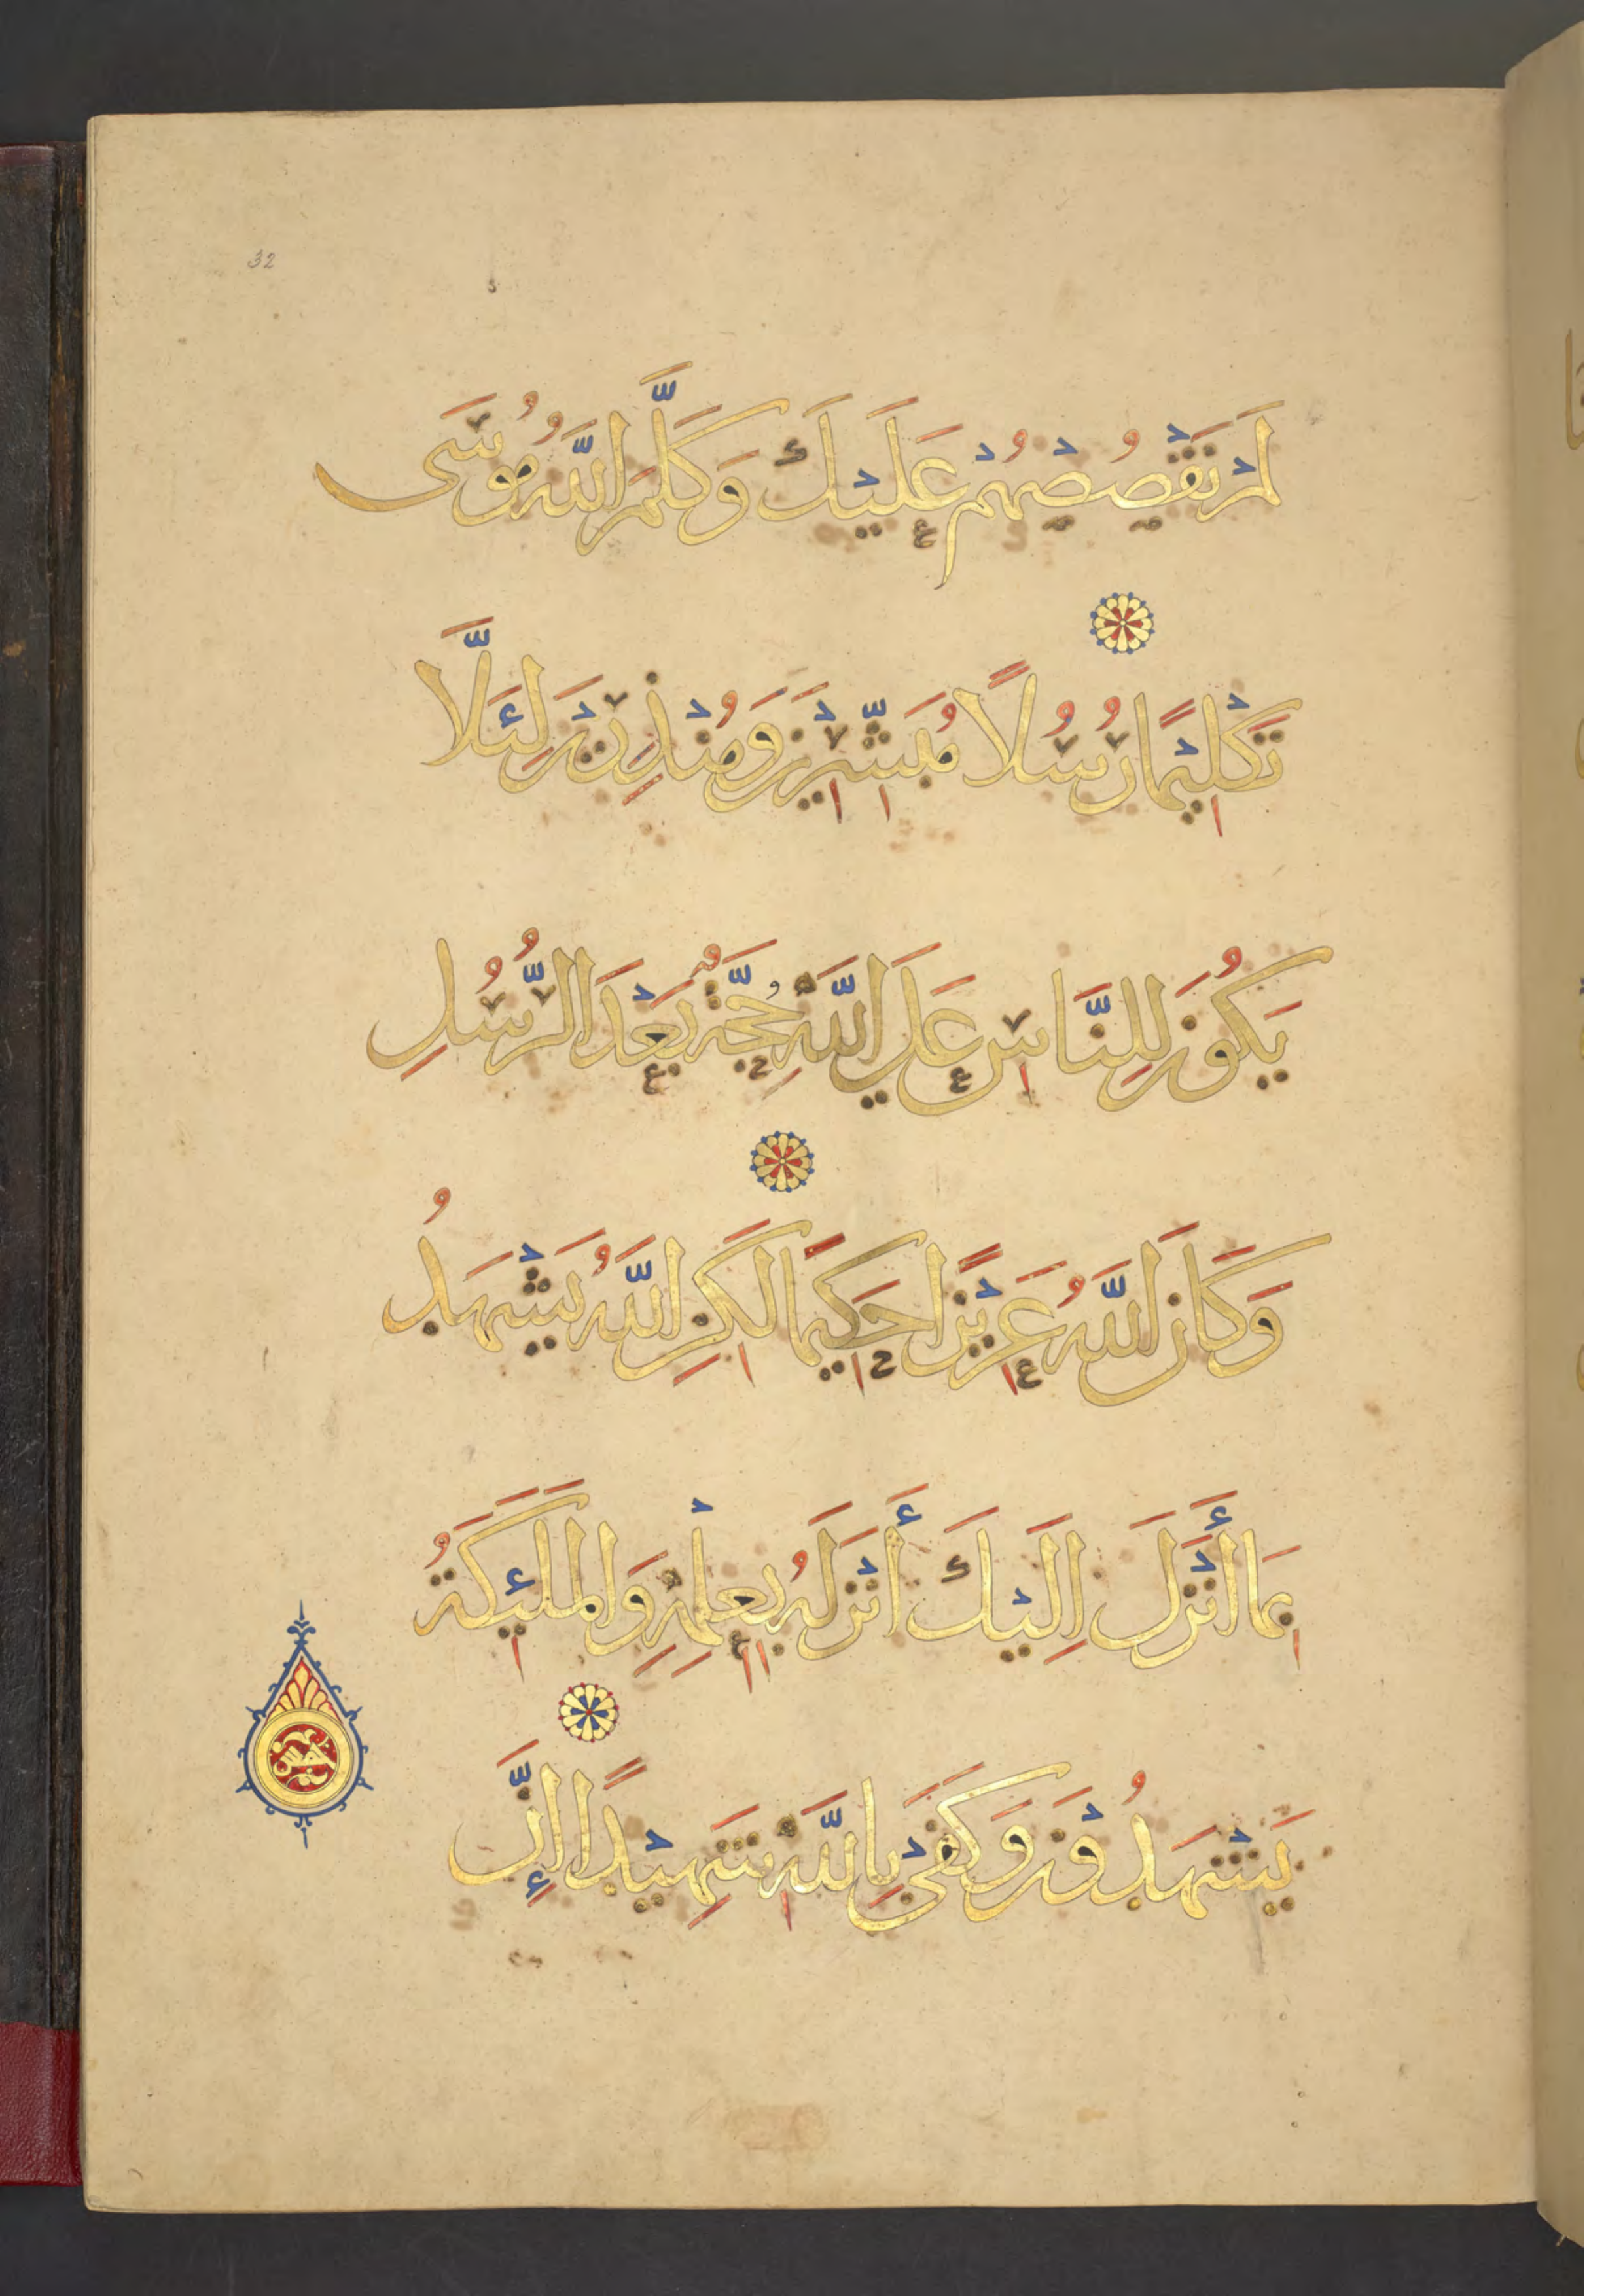 32
لَمْ نَقْصُصْهُمْ عَلَيْكَ وَكَلَّمَ اللَّهُ مُوسَى
تَكْلِيْمًا رُسُلًا مُبَشِّرِيْنَ وَمُنْذِرِيْنَ لِئَلَّا
يَكُوْنَ لِلنَّاسِ عَلَى اللَّهِ حُجَّةٌ بَعْدَ الرُّسُلِ
وَكَانَ اللَّهُ عَزِيْزًا حَكِيمًا لَكِنِ اللَّهُ يَشْهَدُ
بِمَا أَنْزَلَ اِلَيْكَ أَنْزَلَهُ بِعِلْمِهِ وَالْمَلَئِكَةُ
يَشْهَدُوْنَ وَكَفَى بِاللَّهِ شَهِيْدًا إِنَّ